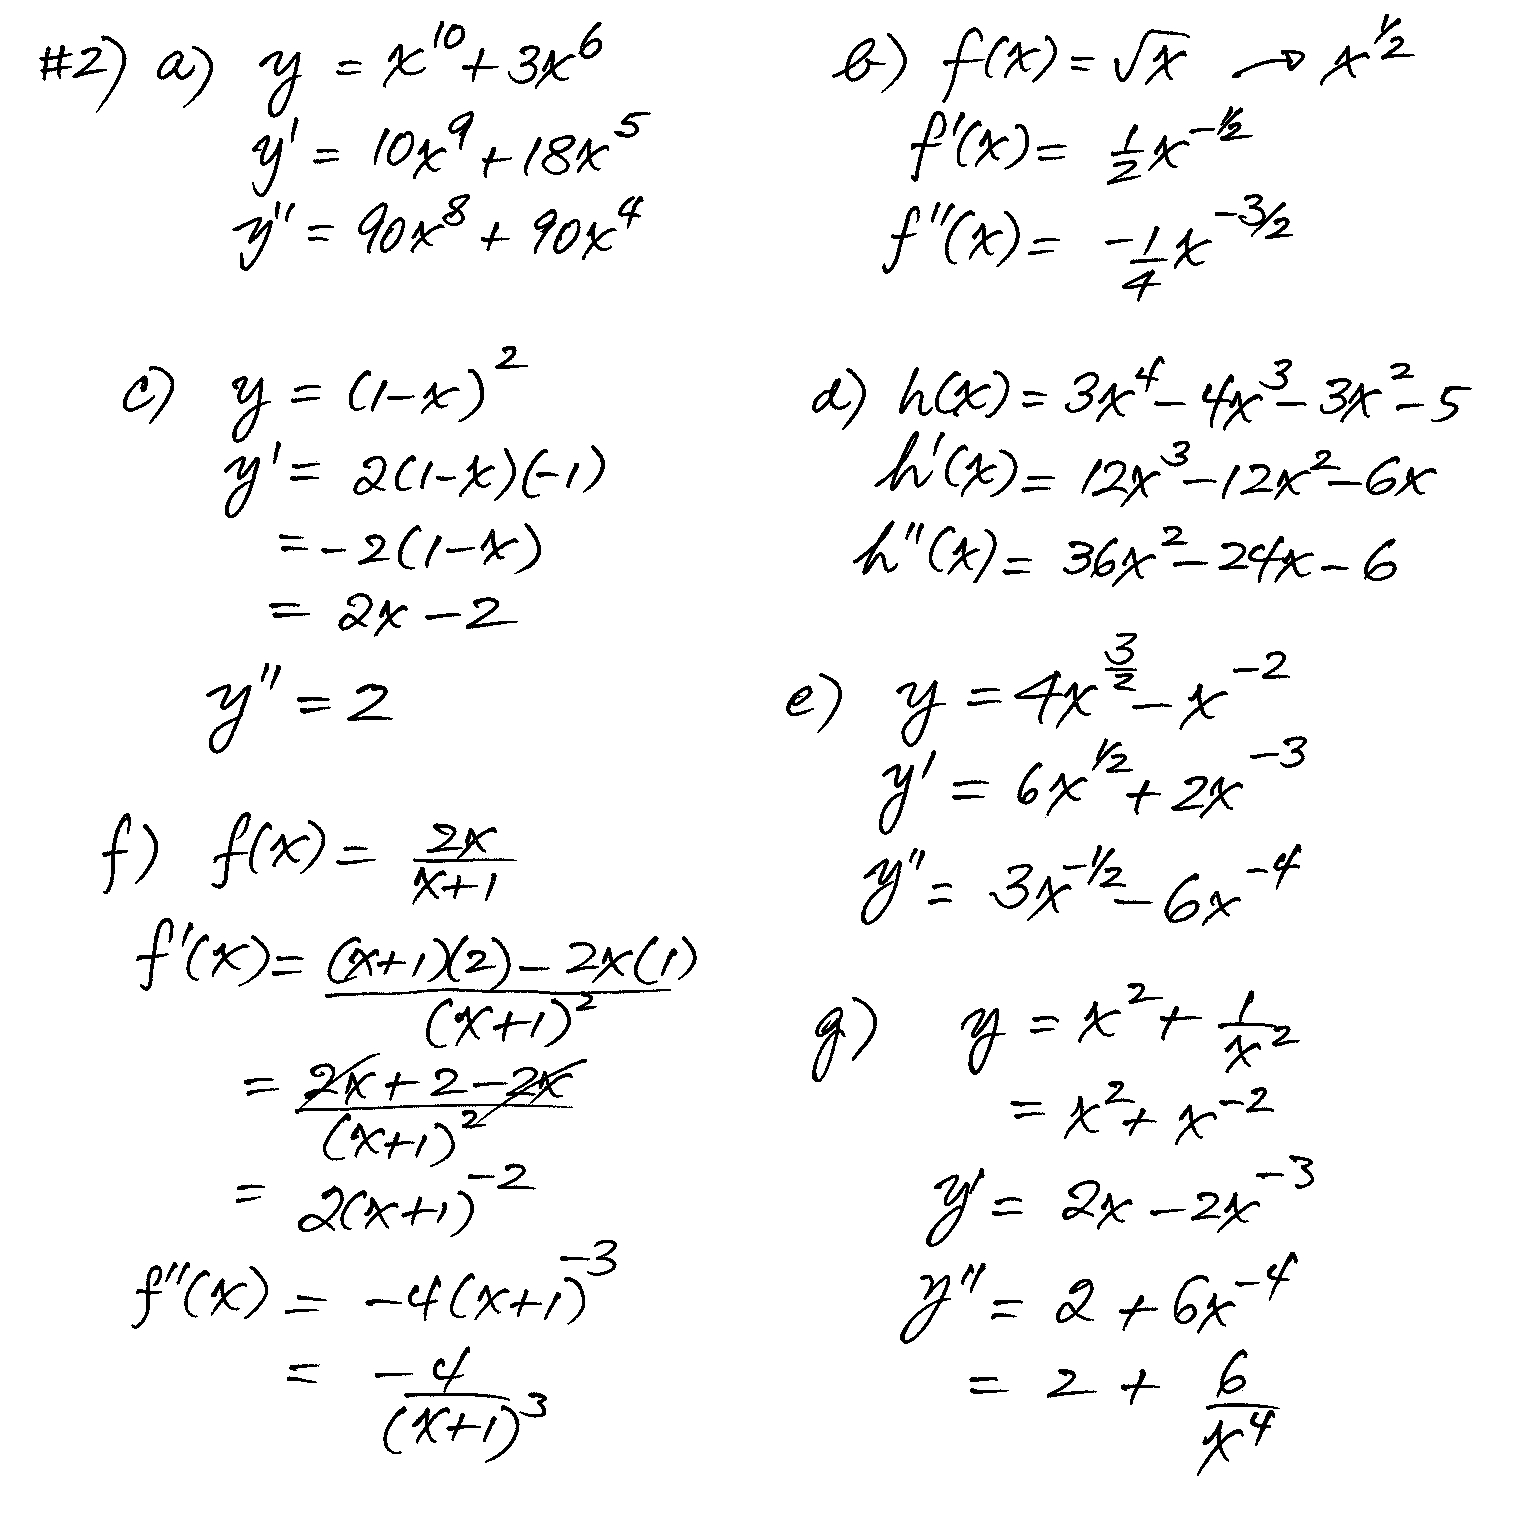 #2) a) y = x¹⁰ + 3x⁶
y' = 10x⁹ + 18x⁵
y'' = 90x⁸ + 90x⁴
b) f(x) = √x → x^½
f'(x) = ½x^-½
f''(x) = -¼x^-3/2
c) y = (1-x)²
y' = 2(1-x)(-1)
= -2(1-x)
= 2x - 2
y'' = 2
d) h(x) = 3x⁴ - 4x³ - 3x² - 5
h'(x) = 12x³ - 12x² - 6x
h''(x) = 36x² - 24x - 6
e) y = 4x^3/2 - x^-2
y' = 6x^½ + 2x^-3
y'' = 3x^-½ - 6x^-4
f) f(x) = 2x/(x+1)
f'(x) = ((x+1)(2) - 2x(1))/(x+1)²
= (2x + 2 - 2x)/(x+1)²
= 2(x+1)^-2
f''(x) = -4(x+1)^-3
= -4/(x+1)³
g) y = x² + 1/x²
= x² + x^-2
y' = 2x - 2x^-3
y'' = 2 + 6x^-4
= 2 + 6/x⁴